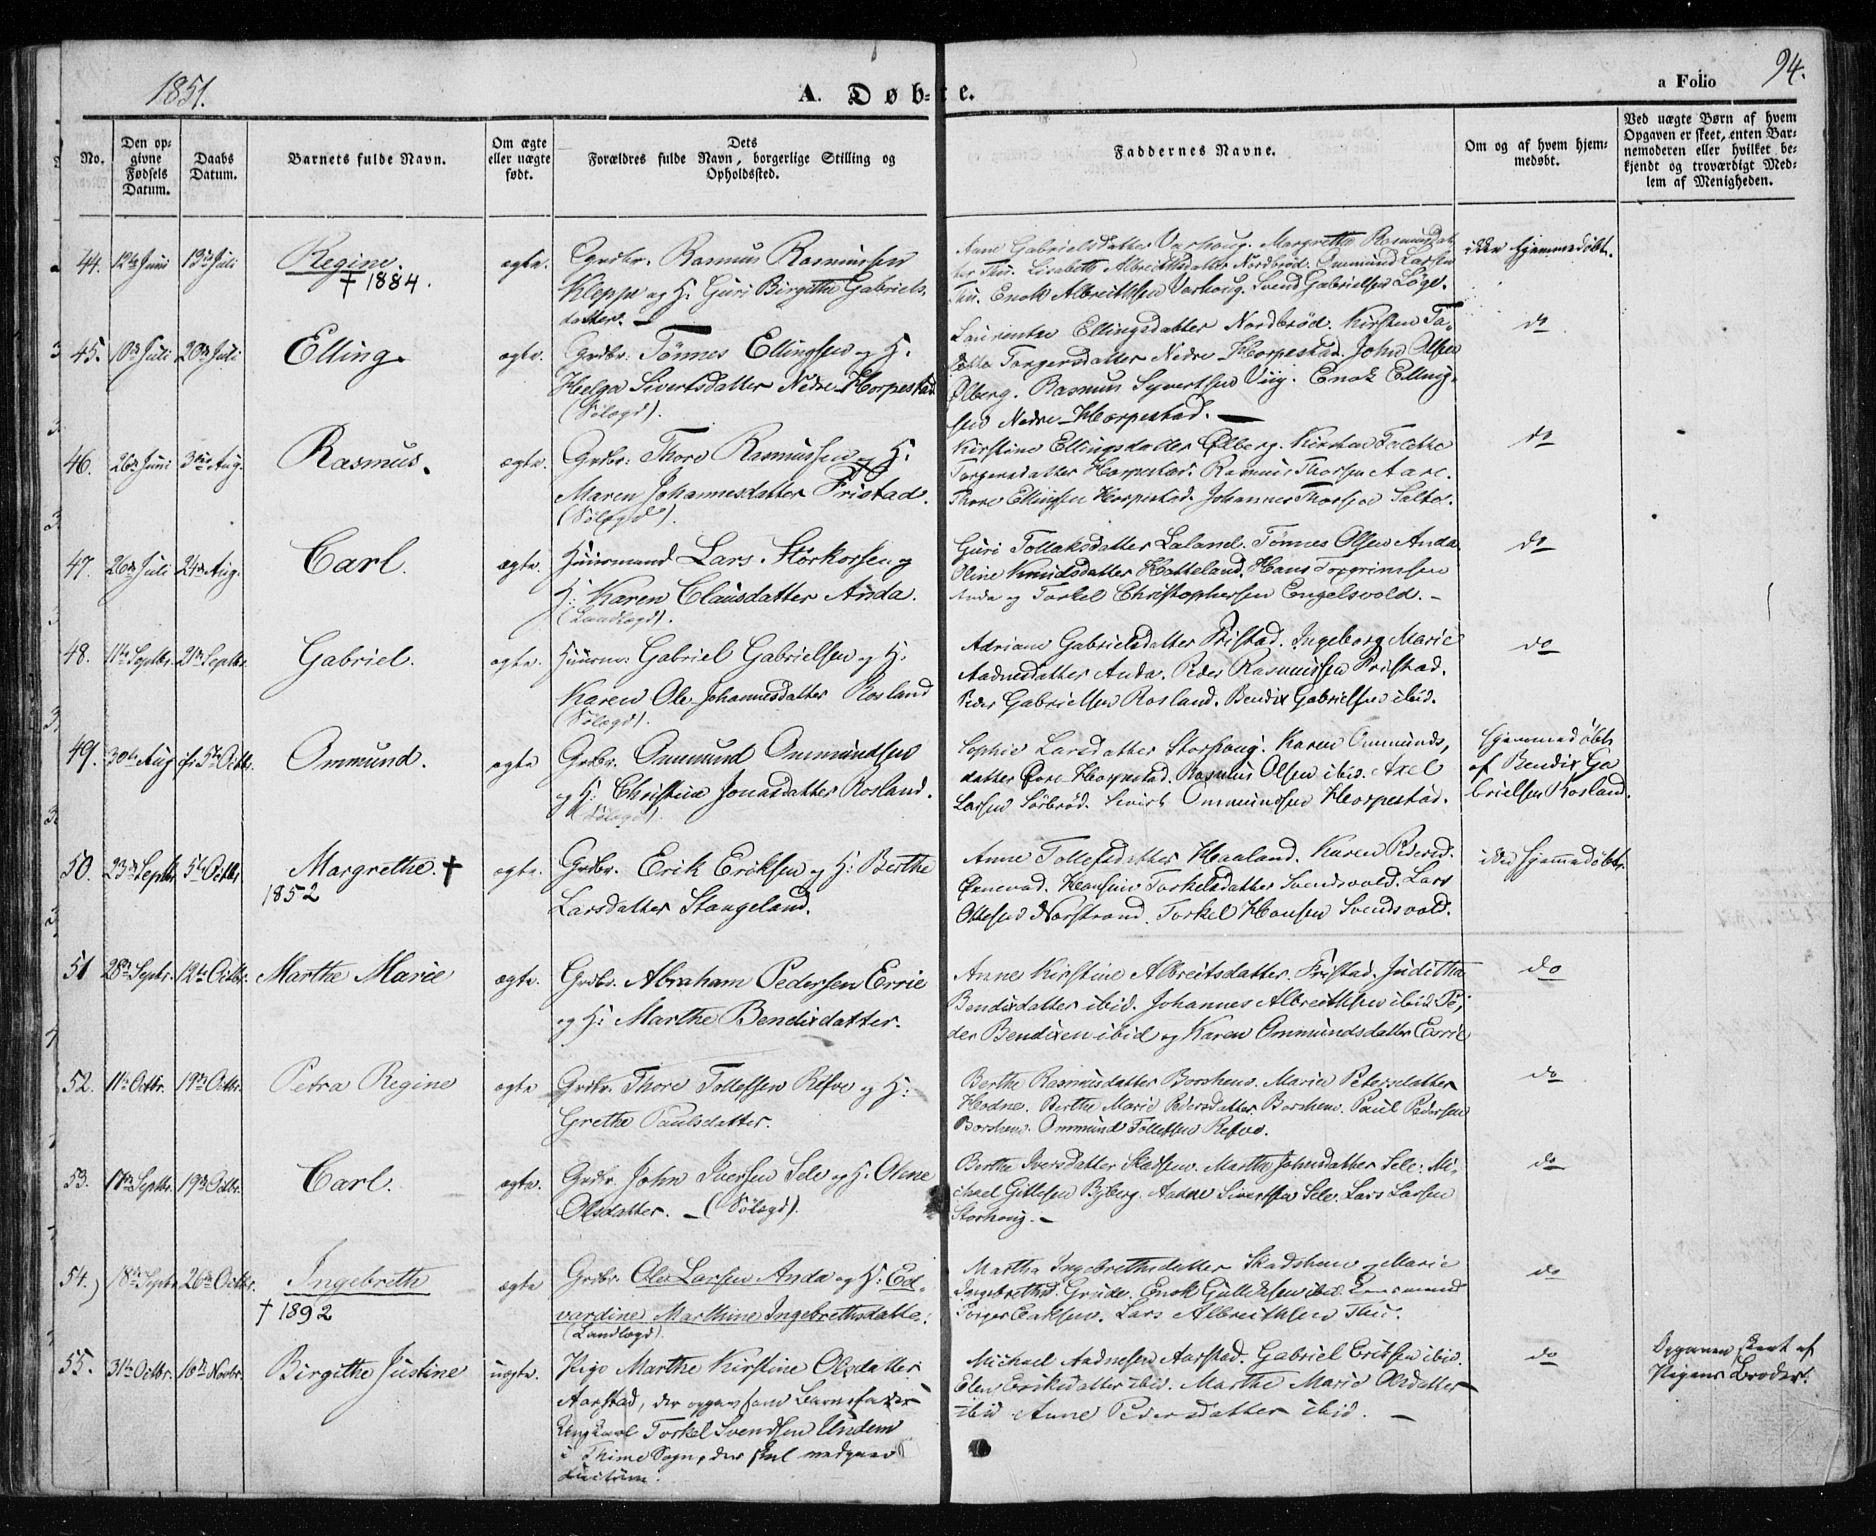 1851.
A. Døbte.
a Folio 94.
No.
Den opgivne Fødsels Datum.
Daabs Datum.
Barnets fulde Navn.
Om ægte eller uægte født.
Dets Forældres fulde Navn, borgerlige Stilling og Opholdssted.
Faddernes Navne.
Om og af hvem hjemmedøbt.
Ved uægte Børn af hvem Opgaven er skeet, enten Barnemoderen eller hvilket bekjendt og troværdigt Medlem af Menigheden.
44. 12te Juni 13de Juli Regine. ægte. Grdbr. Rasmus Rasmussen
† 1884.
Kleppe og H. Guri Birgithe Gabriels-
datter. —
Anne Gabrielsdatter Varhoug. Margrethe Rasmusdat-
ter Thu. Lisabeth Albreithsdatter Nordbrød. Ommund Larsen
Thu. Enok Albreithsen Varhoug. Svend Gabrielsen Løge.
ikke hjemmedøbt.
45. 10de Juli 20de Juli Elling. ægte. Grdbr. Tønnes Ellingsen og H.
Helga Sivertsdatter Nedre Horpestad
(Sølægd).
Laurentze Ellingsdatter Nordbrød. Kirsten Ta-
letta Torgersdatter Nedre Horpestad. John Olsen
Ølberg. Rasmus Syvertsen Viig. Enok Elling-
sen Nedre Horpestad. —
do
46. 26de Juni 3die Aug. Rasmus. ægte. Grdbr: Thore Rasmussen og H:
Maren Johannesdatter Fristad.
(Sølægd).
Kirstine Ellingsdatter Ølberg. Kirsten Talette
Torgersdatter Horpestad. Rasmus Thorsen Aare.
Thore Ellingsen Horpestad. Johannes Thorsen Salte.
do
47. 26de Juli 24de Aug. Carl. ægte. Huusmand Lars Størkorsen og
H: Karen Clausdatter Anda.
(Landlægd).
Guri Tollaksdatter Laland. Tønnes Olsen Anda
Oline Knudsdatter Hatteland. Hans Torgrimsen
Anda og Torkel Christophersen Engelsvold. —
do
48. 11te Septbr. 21de Septbr. Gabriel. ægte. Huusm: Gabriel Gabrielsen og H.
Karen Ole Johannesdatter Rosland
(Sølægd).
Adriane Gabrielsdatter Fristad. Ingeborg Marie
Aadnesdatter Anda. Peder Rasmussen Fristad.
Peder Gabrielsen Rosland. Bendix Gabrielsen ibid.
do
49. 30te Aug 5te Octbr. Ommund. ægte Grdbr. Ommund Ommundsen
og H: Christine Jonasdatter Rosland.
(Sølægd).
Sophie Larsdatter Storhoug. Karen Ommunds-
datter Øvre Horpestad. Rasmus Olsen ibid. Axel
Larsen Sørbrød. Sivert Ommundsen Horpestad.
Hjemmedøbt
af Bendix Ga
brielsen Rosland.
50. 23de Septbr. 5te Octbr. Margrethe. † ægte. Grdbr. Erik Eriksen og H: Berthe
1852
Larsdatter Stangeland.
Anne Tollefsdatter Haaland. Karen Pedersd.
Ørnevad. Hansine Torkelsdatter Svendsvold. Lars
Ottesen Norstrand. Torkel Hansen Svendsvold.
ikke hjemmedøbt.
51 28de Septbr. 12te Octbr. Marthe Marie ægte. Grdbr. Abraham Pedersen Errie
og H: Marthe Bendixdatter.
Anne Kirstine Albreitsdatter Fristad. Judithe
Bendixdatter ibid. Johannes Albreithsen ibid. Pe-
der Bendixen ibid og Karen Ommundsdatter Errie
do
52. 11te Octbr. 19de Octbr. Petra Regine ægte Grdbr. Thore Tollefsen Refve og H:
Grethe Paulsdatter.
Berthe Rasmusdatter Borshem. Marie Petersdatter
Hodne. Berthe Marie Pedersdatter Borshem. Paul Pedersen
Borshem. Ommund Tollefsen Refve.
do
53. 17de Septbr. 19de Octbr. Carl. ægte. Grdbr. John Iversen Sele og H. Oline
Olsdatter. — (Sølægd).
Berthe Iversdatter Skadsem. Marthe Johnsdatter Sele. Mi-
chael Gitlesen Byberg. Aadne Sivertsen Sele. Lars Larsen
Storhoug. —
do
54. 18de Septbr 26de Octbr. Ingebreth ægte Grdbr. Ole Larsen Anda og H: Ed-
† 1892
vardine Marthine Ingebrethsdatter.
(Landlægd).
Marthe Ingebrethsdatter Skadshem og Marie
Ingebrethsd. Grude. Enok Gulliksen ibid.
Torger Eriksen. Lars Albreithsen Thu.
do
55. 31te Octbr. 16de Novbr. Birgithe Justine uægte. Pige Marthe Kirstine Olsdatter
Aarstad, der opgav som Barnefader
Ungkarl Torkel Svendsen Undem
i Thime Sogn, der skal nedgaae
Michael Aadnesen Aarstad. Gabriel Eriksen ibid.
Elen Eriksdatter ibid. Marthe Marie Olsdatter
ibid Anne Pedersdatter ibid. —
do
Opgaven skeet af
Pigens Broder.